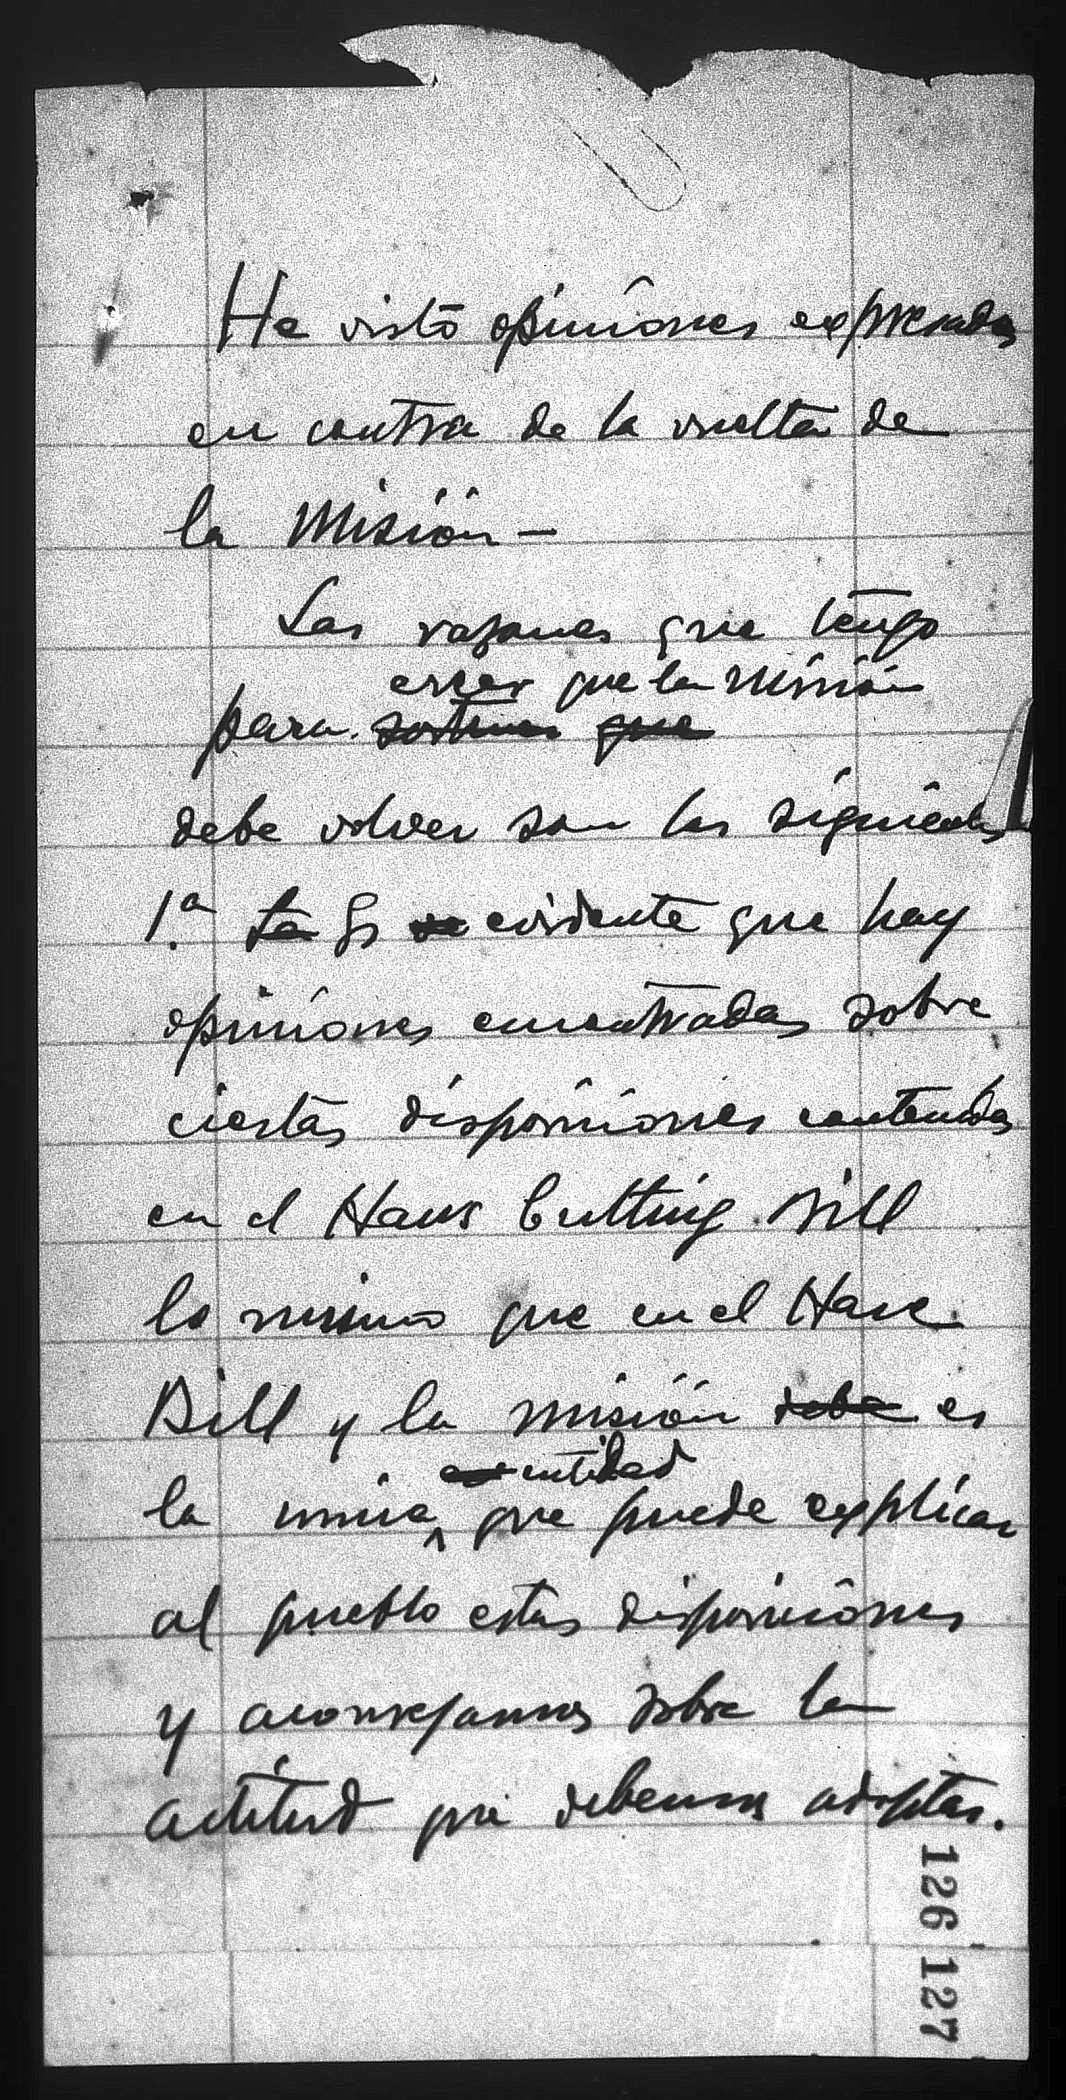 He visto opiniones expresadas
en contra de la vuelta de
la Misión—
Las razones que tengo
creer que la misión
para sostener que
debe volver son las siguientes
1.ª La Es evidente que hay
opiniones encontradas sobre
ciertas disposiciones contenidas
en el Haws Cutting Bill
lo mismo que en el Hare
Bill y la misión debe es
la unica entidad que puede explicar
al pueblo estas disposiciones
y aconsejarnos sobre la
actitud que debemos adoptar.
126 127